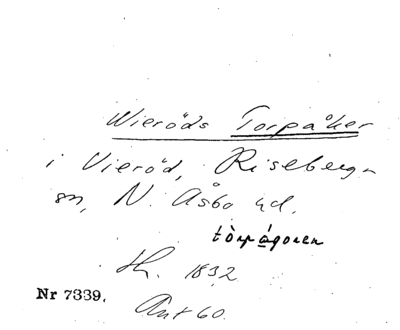 Wieröds Torpåker
i Vieröd, Riseberga
sn, N. Åsbo hd.
tòrpågoren
Sk. 1832
Nr 7339.
Ant 60.